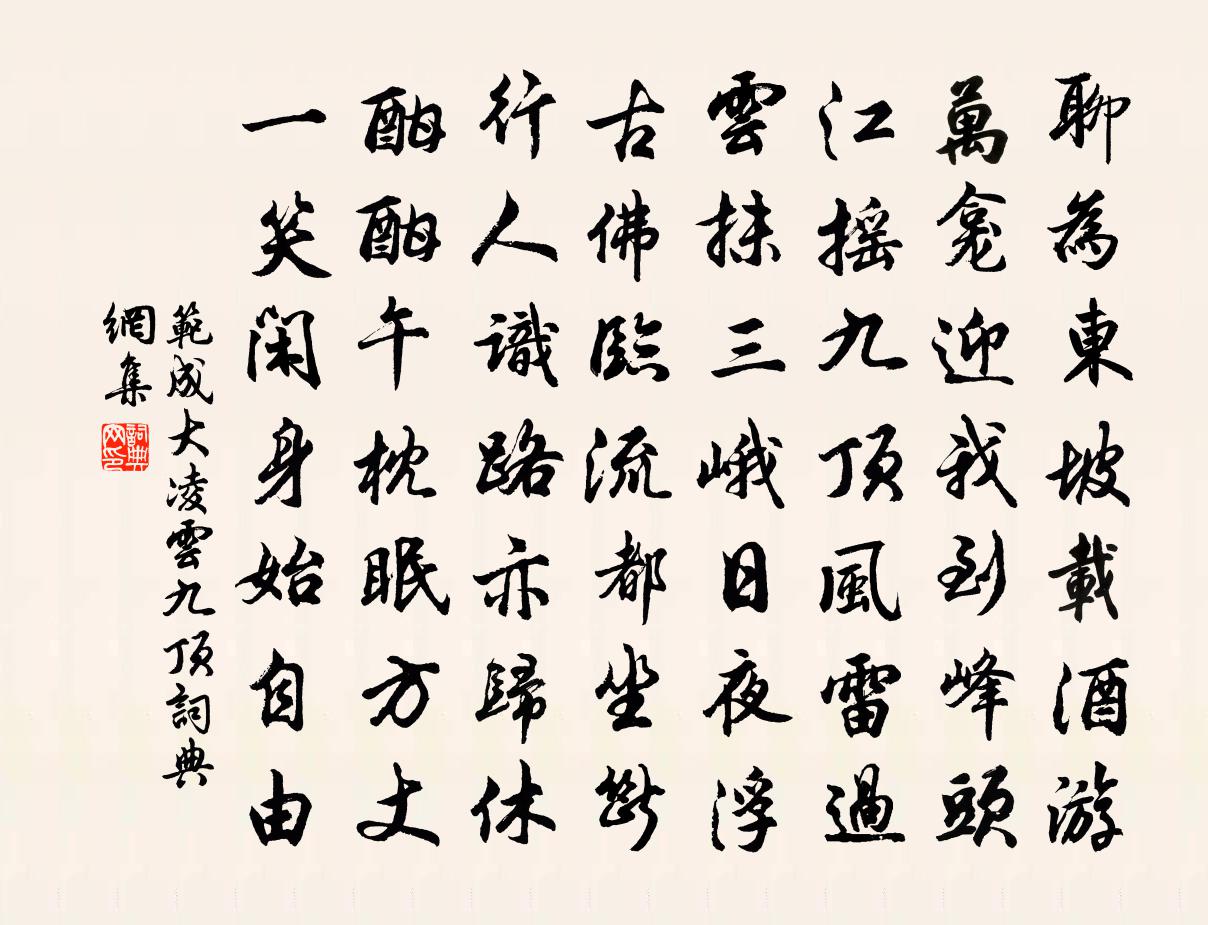 聊為東坡載酒游
萬龕迎我到峰頭
江搖九頂風雷過
雲抹三峨日夜浮
古佛臨流都坐斷
行人識路亦歸休
酣酣午枕眠方丈
一笑閑身始自由
範成大凌雲九頂詞典
網集
詞典
网印